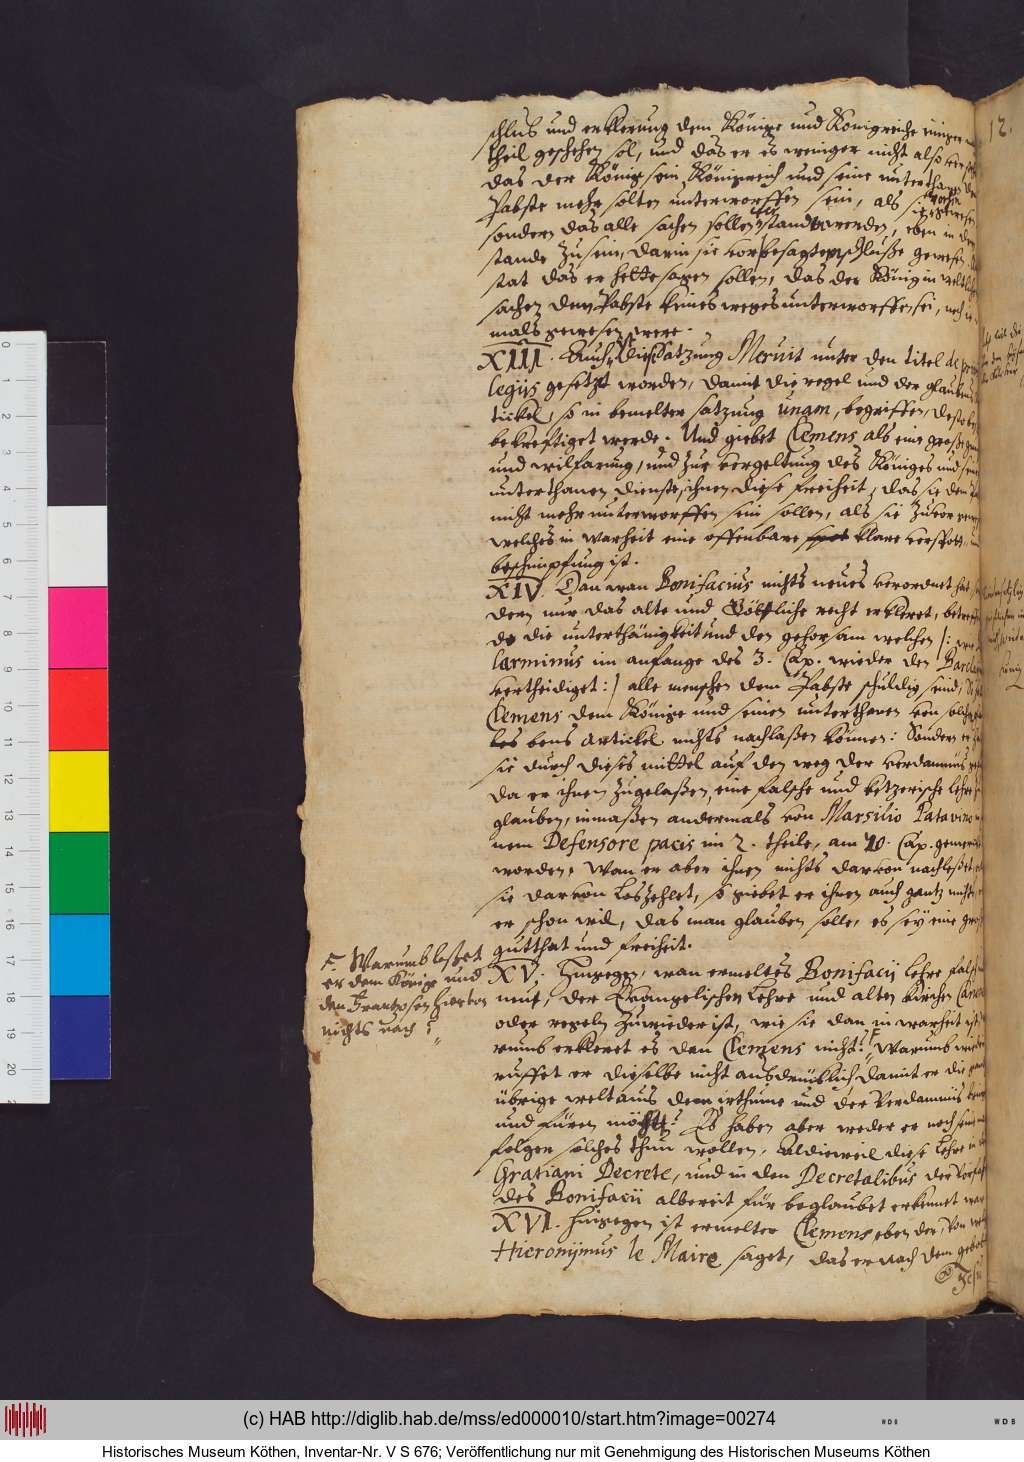 schluß und erklerung dem Könige und Königreiche einiger
theil geschehen sol, und das er es weniger nicht also
das der König sein Königreich und seine unterthanen dem
Pabste mehr solten unterworffen sein, als sie zuvor gewesen
sondern das alle sachen sollen verstanden werden, eben in dem
stande zu sein, darin sie vor besagtem schluße gewesen
stat das er hette sagen sollen, das der König in weltlichen
sachen dem Pabste keines weges unterworffen sei, noch
mals gewesen were.
XIII. Auch die Satzung Meruit unter den titel de privi
legijs gesetzt worden, damit die regel und der glaubens
tickel, so in bemelter satzung unam, begriffen, desto
bekreftiget werde. Und giebet Clemens als eine große
und wilfarung, und zur vergeltung des Königes und seiner
unterthanen dienste, ihnen diese freiheit, das sie dem
nicht mehr unterworffen sein sollen, als sie zuvor
welches in warheit eine offenbare klare verspottung
beschimpfung ist.
XIV. Dan wan Bonifacius nichts neues verordnet hat,
dern nur das alte und Göttliche recht erkleret, betreffen
de die unterthänigkeit und den gehorsam welchen /: wie
larminus im anfange des 3. Cap. wieder den Barclaium
vertheidiget :/ alle menschen dem Pabste schuldig seind,
Clemens dem Könige und seinen unterthanen von solchem
bens artickel nichts nachlaßen können: Sondern er
sie durch dieses mittel auf den weg der verdamnüs
da er ihnen zugelaßen, eine falsche und ketzerische lehre zu
glauben, inmaßen andermals von Marsilio Patavino
nem Defensore pacis im 2. theile, am 20. Cap. gemercket
worden, Wan er aber ihnen nichts darvon nachleßet,
sie darvon loszehlet, so giebet er ihnen auch gantz nichts,
er schon wil, das man glauben solle, es seÿ eine große
gutthat und freiheit.
F. Warumb leßet
er dem Könige und
den Frantzosen hiervon
nichts nach?
XV. Hingegen, wan ermeltes Bonifacij lehre falsch
neut, der Evangelischen Lehre und alten Kirchen Canonen
oder regeln zuwieder ist, wie sie dan in warheit ist
rumb erkleret es den Clemens nicht? F Warumb wieder
ruffet er dieselbe nicht ausdrücklich damit er die gantze
übrige welt aus dem irthume und der Verdamnüs
und füren möchte? Es haben aber weder er noch seine
folger solches thun wollen, Aldieweil diese lehre in
Gratiani Decrete, und in den Decretalibus der
des Bonifacii albereit für beglaubet erkennet
XVI. Hingegen ist ermelter Clemens, eben der, von
Hieronÿmus le Maire saget, das er nach dem gebote
Jesu
12.
(c) HAB http://diglib.hab.de/mss/ed000010/start.htm?image=00274
Historisches Museum Köthen, Inventar-Nr. V S 676; Veröffentlichung nur mit Genehmigung des Historischen Museums Köthen